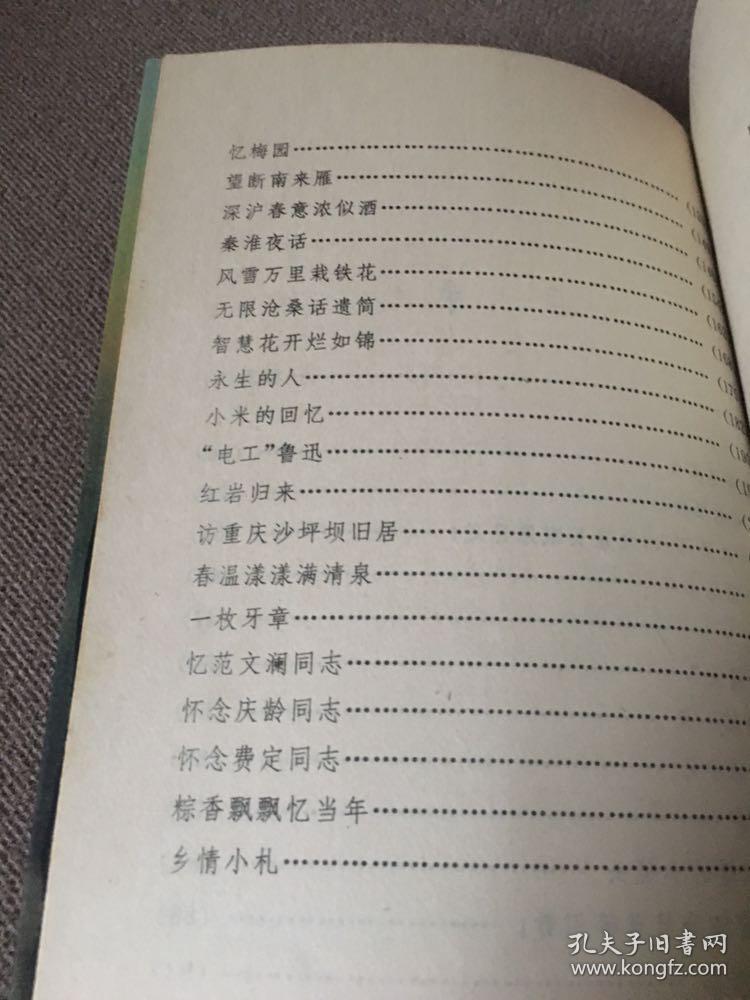 忆梅园
望断南来雁
深沪春意浓似酒
秦淮夜话
风雪万里栽铁花
无限沧桑话遗简
智慧花开烂如锦
永生的人
小米的回忆
“电工”鲁迅
红岩归来
访重庆沙坪坝旧居
春温漾漾满清泉
一枚牙章
忆范文澜同志
怀念庆龄同志
怀念费定同志
粽香飘飘忆当年
乡情小札
孔夫子旧書网
www.kongfz.com